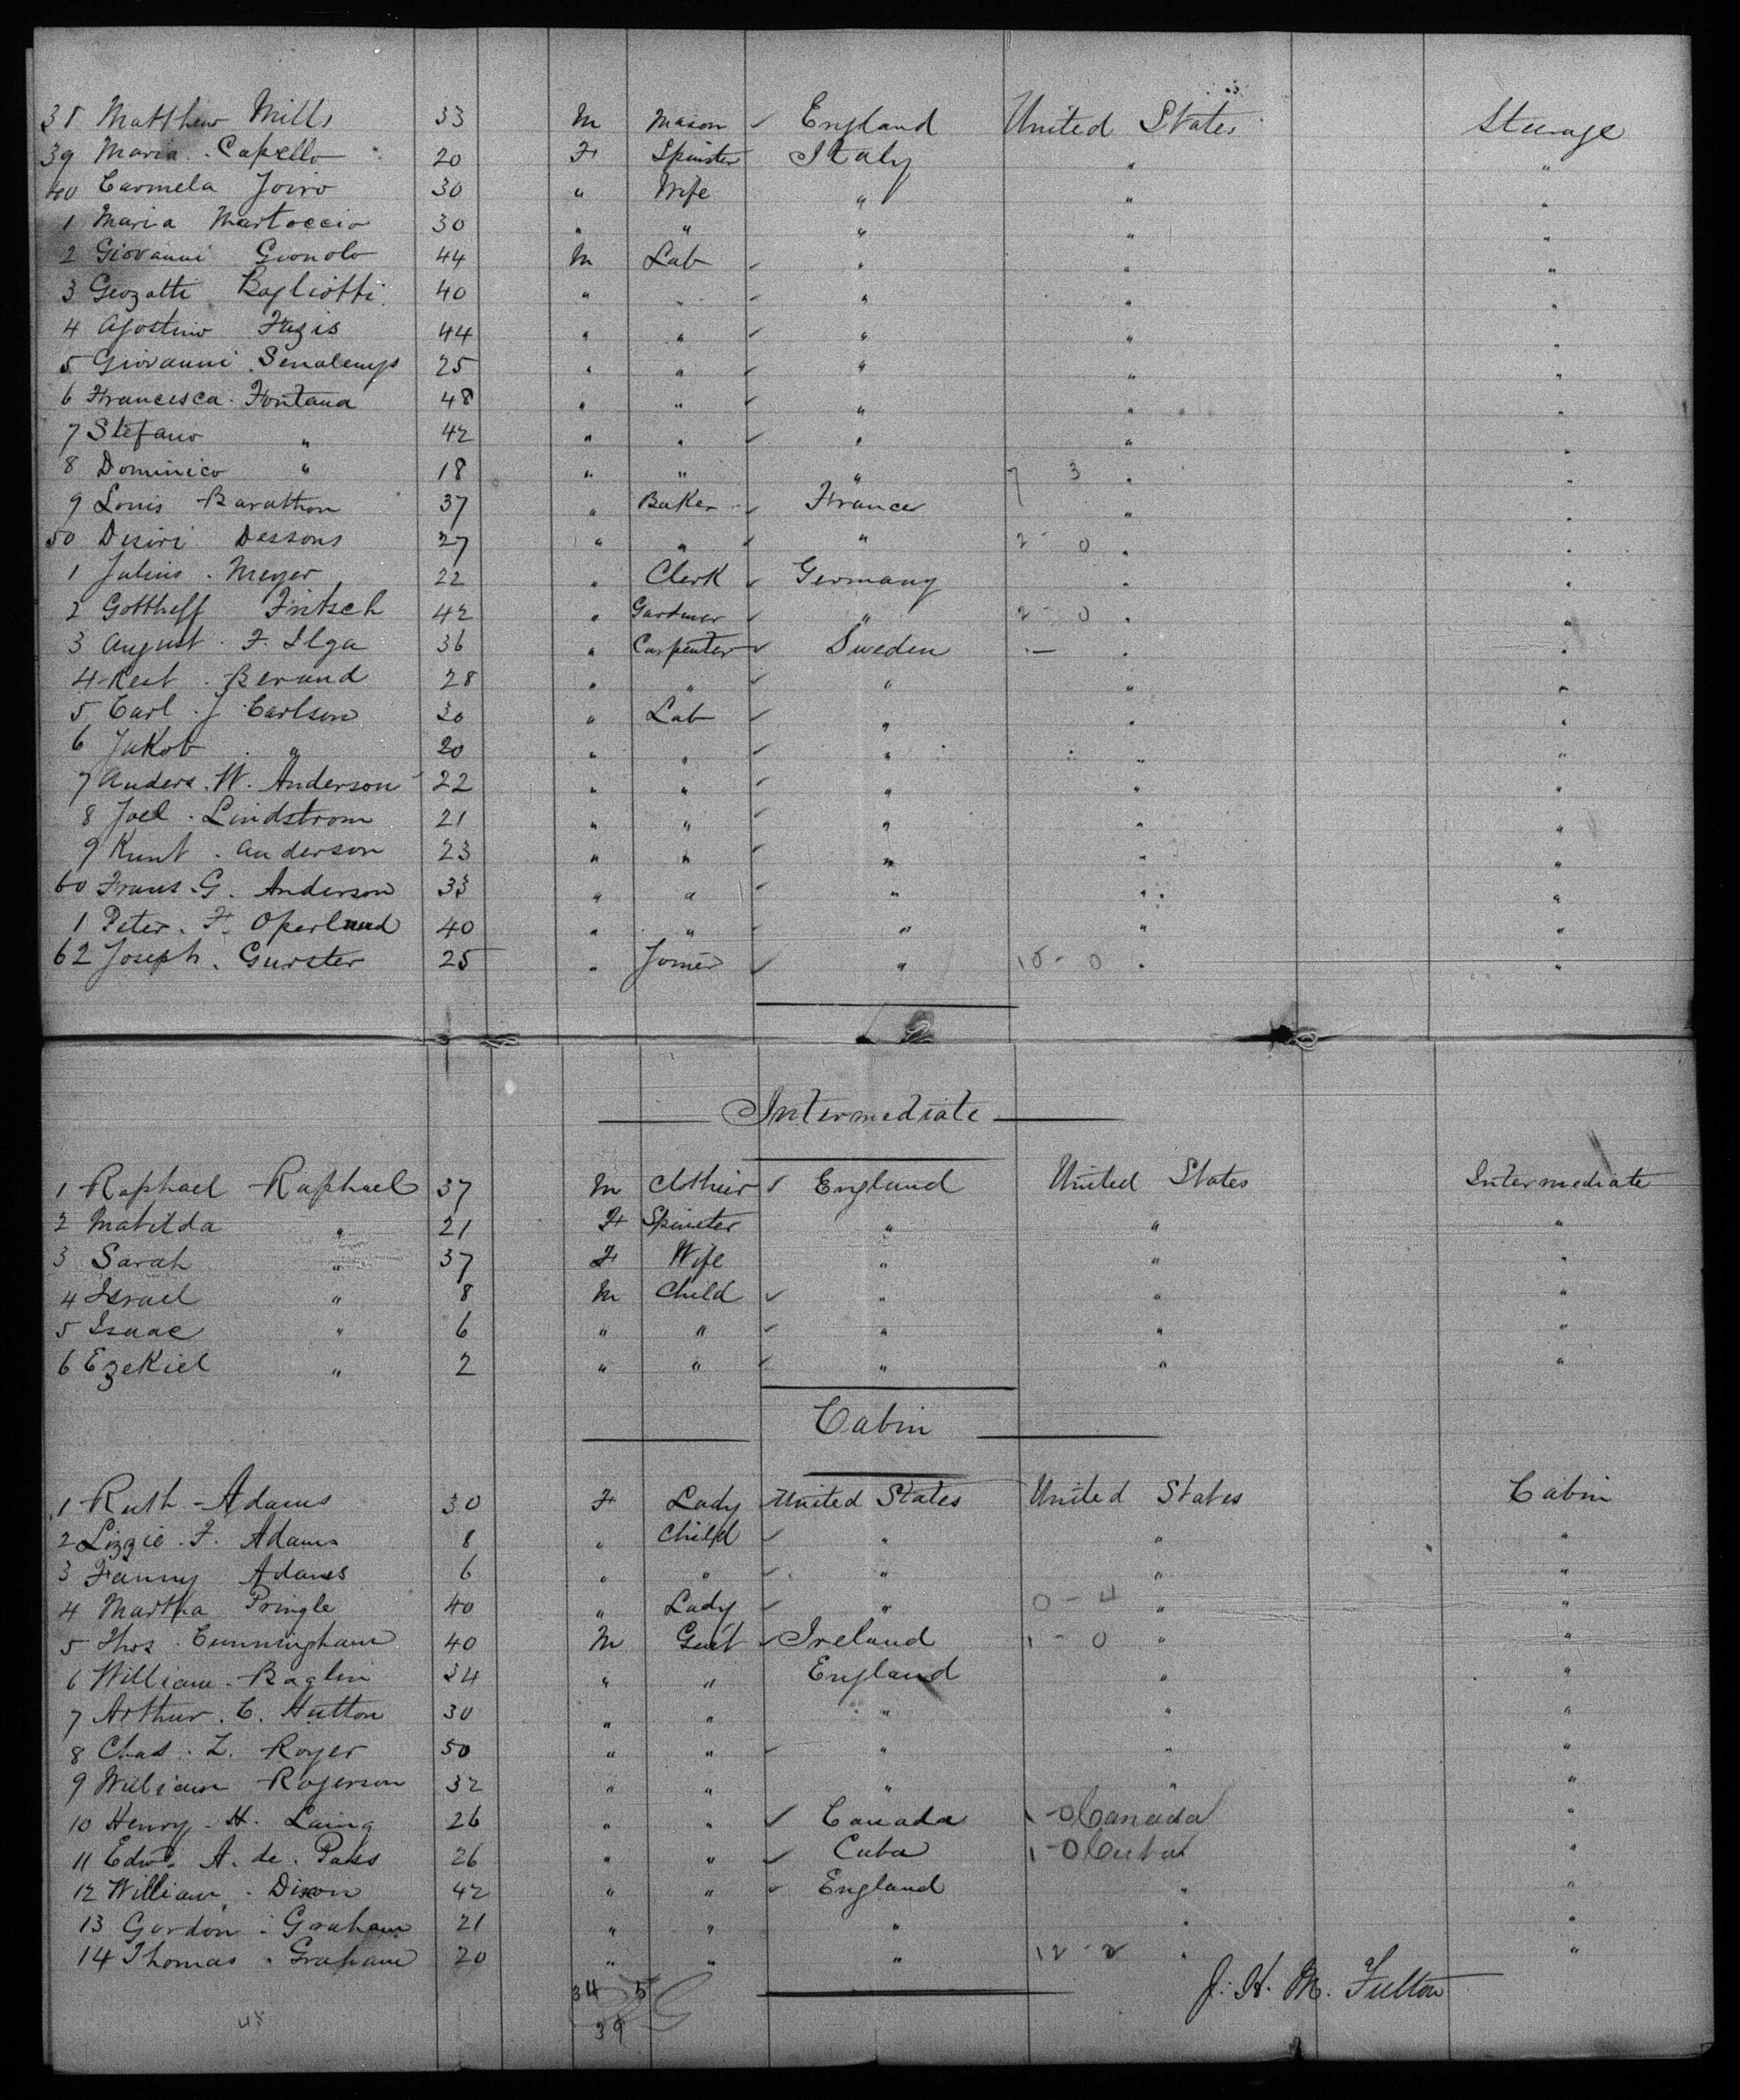 38 Matthew Mills 33 M Mason ✓ England United States Steerage
39 Maria Capello 20 F Spinster Italy " "
40 Carmela Joiro 30 " Wife " " "
1 Maria Martoccio 30 " " " " "
2 Giovanni Gionolo 44 M Lab ✓ " " "
3 Geozatti Bagliotti 40 " " ✓ " " "
4 Agostino Fazis 44 " " ✓ " " "
5 Giovanni 25 " " ✓ " " "
6 Francesca Fontana 48 " " ✓ " " "
7 Stefano " 42 " " ✓ " " "
8 Dominico " 18 " " " 7 3 " "
9 Louis Barathon 37 " Baker ✓ France " "
50 Desiri Dessons 27 " " ✓ " 2 - 0 " "
1 Julius Meyer 22 " Clerk ✓ Germany " "
2 Gotthelf Fritsch 42 " Gardener ✓ " 2 - 0 " "
3 August F. Ilga 36 " Carpenter ✓ Sweden " "
4 Berand 28 " " ✓ " " "
5 Carl J Carlson 30 " Lab ✓ " " "
6 Jakob " 20 " " ✓ " " "
7 Anders W. Anderson 22 " " ✓ " " "
8 Joel Lindstrom 21 " " ✓ " " "
9 Knut Anderson 23 " " ✓ " " "
60 Frans G. Anderson 33 " " ✓ " " "
1 Peter F. Operlund 40 " " " " "
62 Joseph Gurster 25 " Joiner ✓ " 15 - 0 " "
Intermediate
1 Raphael Raphael 37 M Clothier ✓ England United States Intermediate
2 Matilda " 21 F Spinster " " "
3 Sarah " 37 F Wife " " "
4 Israel " 8 M Child ✓ " " "
5 Isaac " 6 " " ✓ " " "
6 Ezekiel " 2 " " ✓ " " "
Cabin
1 Ruth Adams 30 F Lady ✓ United States United States Cabin
2 Lizzie F. Adams 8 " Child ✓ " " "
3 Fanny Adams 6 " " ✓ " " "
4 Martha Pringle 40 " Lady ✓ " 0 - 4 " "
5 Thos Cunningham 40 M Gent ✓ Ireland 1 - 0 " "
6 William Baglin 34 " " England " "
7 Arthur C. Hutton 30 " " " " "
8 Chas L. Royer 50 " " ✓ " " "
9 William Rogerson 32 " " " " "
10 Henry H. Laing 26 " " ✓ Canada 1 - 0 Canada "
11 Edwd A. de Pass 26 " " ✓ Cuba 1 - 0 Cuba "
12 William Dixon 42 " " ✓ England " "
13 Gordon Graham 21 " " " " "
14 Thomas Graham 20 " " " 12 - 2 " "
J. H. M. Fulton
34 5
39